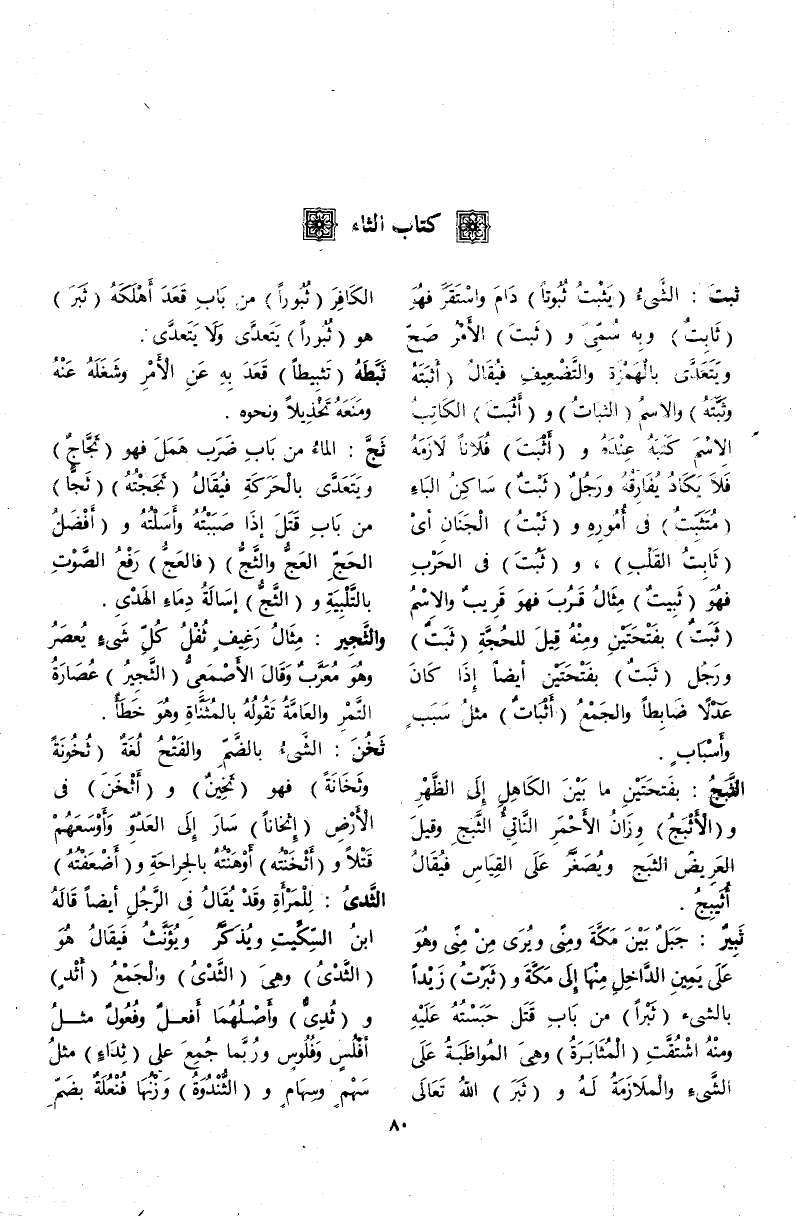 كتاب الثاء
ثبتَ : الشَّىءُ ( يَثْبُتُ ثُبُوتاً ) دَامَ واسْتَقَرَّ فهُوَ
( ثَابِتٌ ) وبِهِ سُمِّىَ و ( ثَبتَ ) الأَمْرُ صَحَّ
ويَتَعَدَّى بالْهَمْزَةِ والتَّضْعِيفِ فيُقَالُ ( أَثْبَتَهُ
وثَبَّتَهُ ) والاسمُ ( الثبَاتُ ) و ( أَثْبَتَ ) الكَاتِبُ
الاِسْمَ كَتَبَهُ عِنْدَهُ و ( أَثْبَتَ ) فُلَاناً لَازَمَهُ
فَلاَ يَكَادُ يُفَارِقُهُ ورَجُلٌ ( ثَبْتٌ ) سَاكِنُ البَاءِ
( مُتَثَبِّتٌ ) فى أُمُورِهِ و ( ثَبْتُ ) الْجَنَانِ أىْ
( ثَابِتُ القَلْبِ ) ، و ( ثَبُتَ ) فى الحَرْبِ
فهُوَ ( ثَبِيتٌ ) مِثَالُ قَرُبَ فهوَ قَرِيبٌ والاسْمُ
( ثَبَتٌ ) بفَتْحَتَيْنِ ومِنْهُ قِيلَ للحُجَّةِ ( ثَبَتٌ )
ورَجُل ( ثَبَتٌ ) بفَتْحَتَيْنِ أيضاً إذَا كَانَ
عَدْلًا ضَابِطاً والجَمْعُ ( أَثْبَاتٌ ) مثلُ سَبَبٍ
وأَسْبَابٍ .
الثَّبَجُ : بفَتحَتَيْنِ ما بَيْنَ الكَاهِلِ إلَى الظَّهْرِ
و ( الأَثْبَجُ ) وِزَانُ الأَحْمَرِ النَّاتِئُ الثَّبَجِ وقيلَ
العَرِيضُ الثبَجِ ويُصَغَّرُ عَلَى القِيَاسِ فيُقَالُ
أُثَيبِجُ .
ثَبِيرٌ : جَبَلٌ بَيْنَ مَكَّةَ ومِنًى ويُرَى مِنْ مِنًى وهُوَ
عَلَى يَمِينِ الدَّاخِلِ مِنْهَا إلَى مَكَّةَ و ( ثَبَرْتُ ) زَيْداً
بالشىءِ ( ثَبْراً ) من بَابِ قَتَل حَبَسْتُهُ عَلَيْهِ
ومنْهُ اشْتُقَّتِ ( الْمُثَابَرَةُ ) وهىَ المُوَاظَبَةُ عَلَى
الشَّىءِ والْملَازَمَةُ لَهُ و ( ثَبَرَ ) اللهُ تَعَالَى
الكَافِرَ ( ثُبُوراً ) من بَابِ قَعَدَ أَهْلَكَهُ ( ثَبَرَ )
هو ( ثُبُوراً ) يَتَعدَّى وَلَا يَتعدَّى .
ثَبَّطَهُ ( تَثْبِيطاً ) قَعَدَ بِهِ عَنِ الأَمْرِ وشَغَلَهُ عَنْهُ
ومَنَعَهُ تَخْذِيلاً ونحوه .
ثَجَّ : الماءُ من بَابِ ضَرَبَ هَمَلَ فهو ( ثَجَّاجٌ )
ويَتَعَدَّى بالْحَرَكَةِ فيُقَالُ ( ثَجَجْتُهُ ) ( ثَجًّا )
من بَابِ قَتَلَ إذَا صَبَبْتُهُ وأَسَلْتُهُ و ( أَفْضَلُ
الحَجِّ العَجُّ والثَّجُّ ) ( فالعَجُّ ) رَفْعُ الصَّوْتِ
بالتَّلْبِيَةِ و ( الثَّجُّ ) إسَالَةُ دِمَاءِ الهَدْىِ .
والثَّجِير : مِثَالُ رَغِيفٍ ثُفْلُ كُلِّ شَىءٍ يُعصَرُ
وهُوَ مُعَرَّبٌ وقَالَ الأَصْمَعىُّ ( الثَّجِيرُ ) عُصَارَةُ
التَّمْرِ والعَامَّةُ تَقُولُهُ بالمُثَنَّاةِ وهُوَ خَطَأٌ .
ثَخُنَ : الشَّىءُ بالضَّمِّ والفَتْحُ لُغَةٌ ( ثُخُونَةً
وثَخَانَةً ) فهو ( ثَخِينٌ ) و ( أَثْخَنَ ) فى
الأَرْضِ ( إِثْخَاناً ) سَارَ إلَى العَدُوِّ وأَوْسَعَهُمْ
قَتْلاً و ( أَثْخَنْتُه ) أَوْهَنْتُهُ بالجراحةِ و ( أَضْعَفْتُهُ )
الثَّدىُ : لِلْمَرْأَةِ وقَدْ يُقَالُ فى الرَّجُلِ أيضاً قَالَهُ
ابنُ السِّكِّيتِ ويُذكَّرُ ويُؤَنَّثُ فَيقَالُ هُوَ
( الثَّدْىُ ) وهىَ ( الثَّدْىُ ) والْجَمْعُ ( أَثْدٍ )
و ( ثُدِىٌّ ) وأَصْلُهُمَا أَفعلٌ وفُعُولٌ مثلُ
أَفْلُسٍ وَفُلُوسٍ ورُبَّما جُمِعَ على ( ثِدَاءٍ ) مثلُ
سَهْمٍ وسِهَامٍ و ( الثُّنْدُوَةُ ) وَزْنُهَا فُنْعُلَةٌ بضَمِّ
٨٠